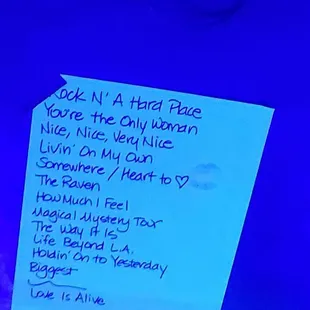 Rock N' A Hard Place
You're the Only Woman
Nice, Nice, Very Nice
Livin' On My Own
Somewhere / Heart to ♡
The Raven
How Much I Feel
Magical Mystery Tour
The Way It Is
Life Beyond L.A.
Holdin' On to Yesterday
Biggest
Love Is Alive